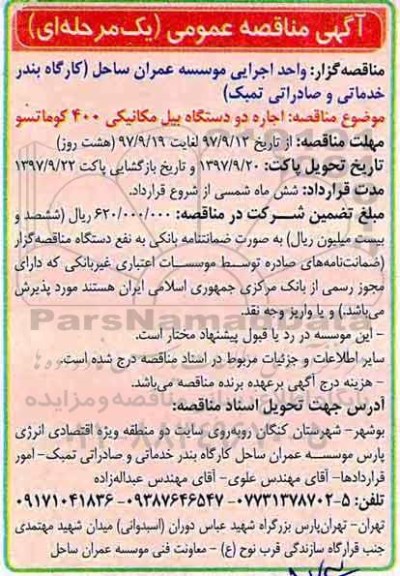 آگهی مناقصه عمومی (یک‌مرحله‌ای)
مناقصه‌گزار: واحد اجرایی موسسه عمران ساحل (کارگاه بندر
خدماتی و صادراتی تمبک)
موضوع مناقصه: اجاره دو دستگاه بیل مکانیکی ۴۰۰ کوماتسو
مهلت مناقصه: از تاریخ ۹۷/۹/۱۲ لغایت ۹۷/۹/۱۹ (هشت روز)
تاریخ تحویل پاکت: ۱۳۹۷/۹/۲۰ و تاریخ بازگشایی پاکت ۱۳۹۷/۹/۲۲
مدت قرارداد: شش ماه شمسی از شروع قرارداد.
مبلغ تضمین شرکت در مناقصه: ۶۲۰/۰۰۰/۰۰۰ ریال (ششصد و
بیست میلیون ریال) به صورت ضمانتنامه بانکی به نفع دستگاه مناقصه‌گزار
(ضمانت‌نامه‌های صادره توسط موسسات اعتباری غیربانکی که دارای
مجوز رسمی از بانک مرکزی جمهوری اسلامی ایران هستند مورد پذیرش
می‌باشد.) و یا واریز وجه نقد.
ParsNamadData
- این موسسه در رد یا قبول پیشنهاد مختار است.
سایر اطلاعات و جزئیات مربوط در اسناد مناقصه درج شده است.
- هزینه درج آگهی برعهده برنده مناقصه می‌باشد.
آدرس جهت تحویل اسناد مناقصه:
بوشهر- شهرستان کنگان روبه‌روی سایت دو منطقه ویژه اقتصادی انرژی
پارس موسسه عمران ساحل کارگاه بندر خدماتی و صادراتی تمبک- امور
قراردادها- آقای مهندس علوی- آقای مهندس عبداله‌زاده
تلفن: ۵-۰۷۷۳۱۳۷۸۷۰۲ -۰۹۳۸۷۶۴۶۵۴۷ -۰۹۱۷۱۰۴۱۸۳۶
تهران- تهران‌پارس بزرگراه شهید عباس دوران (اسبدوانی) میدان شهید مهتمدی
جنب قرارگاه سازندگی قرب نوح (ع) - معاونت فنی موسسه عمران ساحل